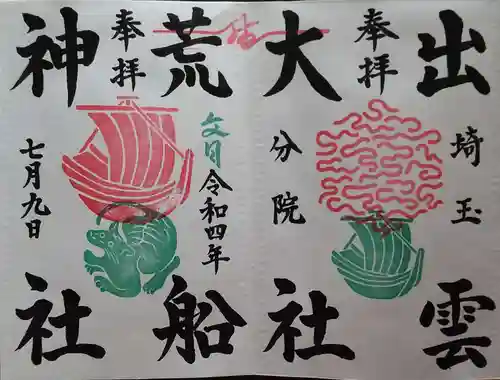 奉拝
出雲
大社
埼玉
分院
奉拝
荒船
神社
文月
令和四年
七月九日